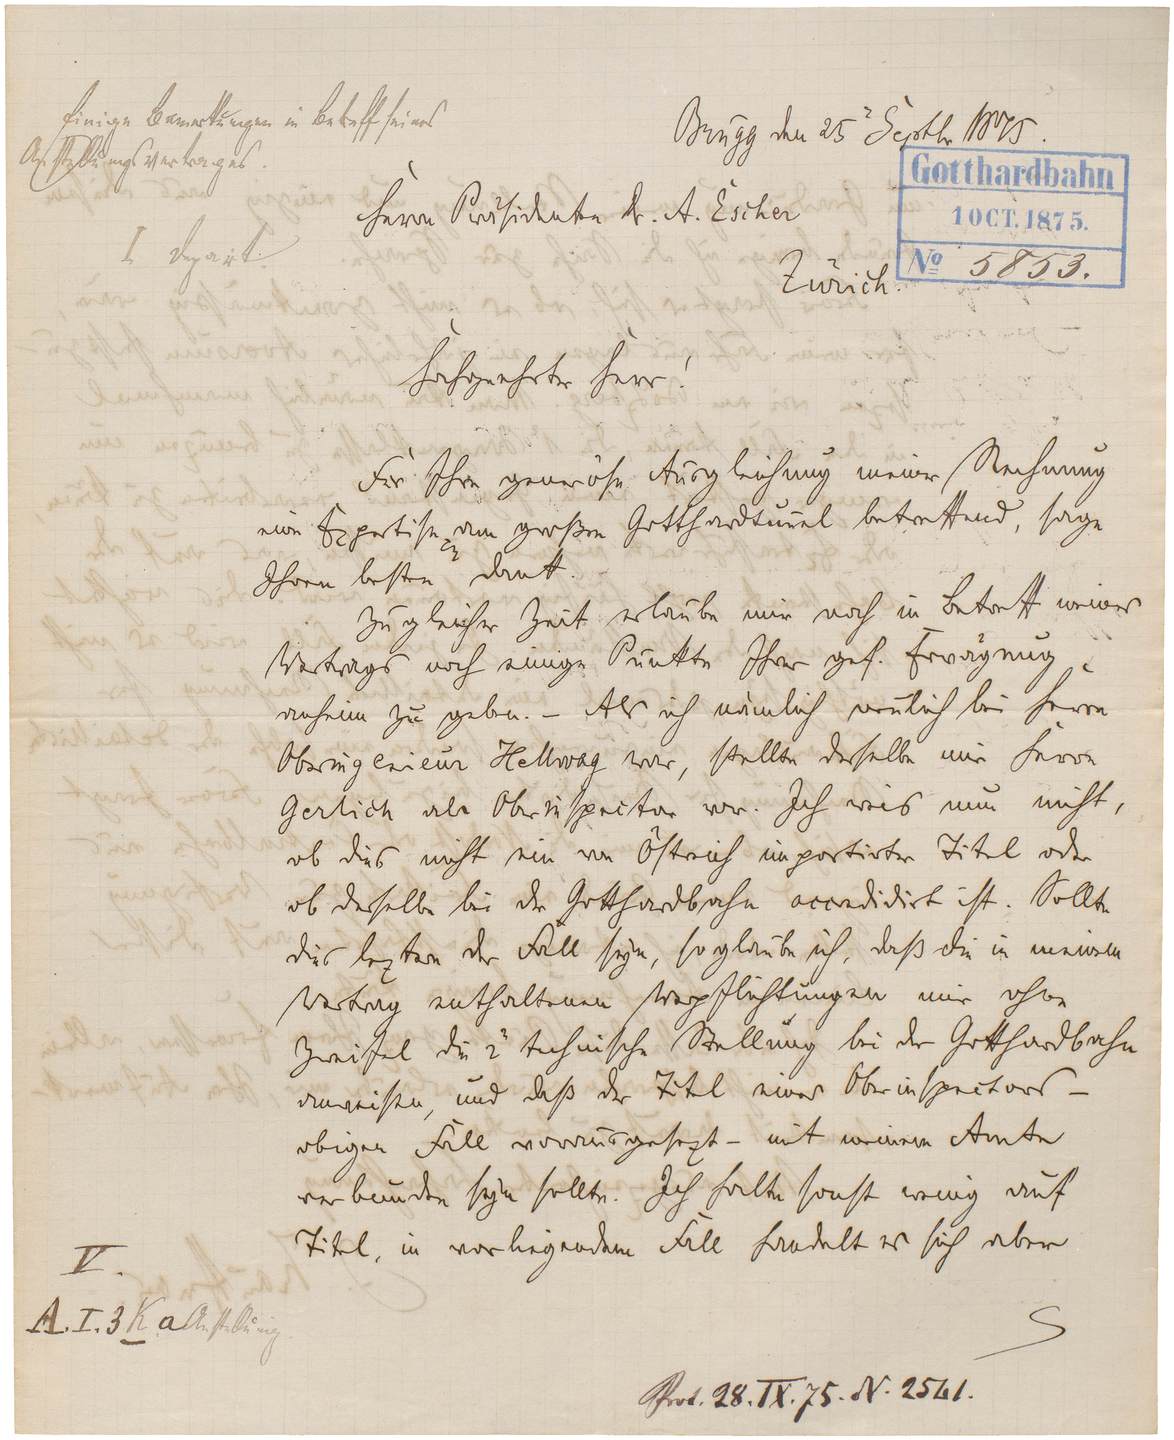 Einige Bemerkungen in Betreff seines
Anstellungsvertrages.
I Depart.
Brugg den 25 Septbr 1875.
Gotthardbahn
1 OCT. 1875.
No 5853.
Herrn Präsidenten Dr. A. Escher
Zürich.
Hochgeehrter Herr!
Für Ihre generöse Ausgleichung meiner Rechnung
eine Expertise am großen Gotthardtunnel betreffend, sage
Ihnen besten Dank.
Zu gleicher Zeit erlaube mir noch in Betreff meines
Vertrags noch einige Punkte Ihrer gef. Erwägung
anheim zu geben. – Als ich nämlich neulich bei Herrn
Oberingenieur Hellwag war, stellte derselbe mir Herrn
Gerlich als Oberinspector vor. Ich weis nun nicht,
ob dies nicht ein von Östreich importirter Titel oder
ob derselbe bei der Gotthardbahn accredidirt ist. Sollte
dies leztere der Fall seyn, so glaube ich, daß die in meinem
Vertrag enthaltenen Verpflichtungen mir ohne
Zweifel die 2te technische Stellung bei der Gotthardbahn
anweisen, und daß der Titel eines Oberinspectors –
obigen Fall vorausgesezt – mit meinem Amte
verbunden seyn sollte. Ich halte sonst wenig auf
Titel, in vorliegendem Fall handelt es sich aber
V.
A.I.3 K a Anstellung
Prot. 28.IX.75. N. 2541.